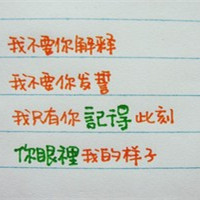 我不要你解释
我不要你发誓
我只有你記得此刻
你眼裡我的样子